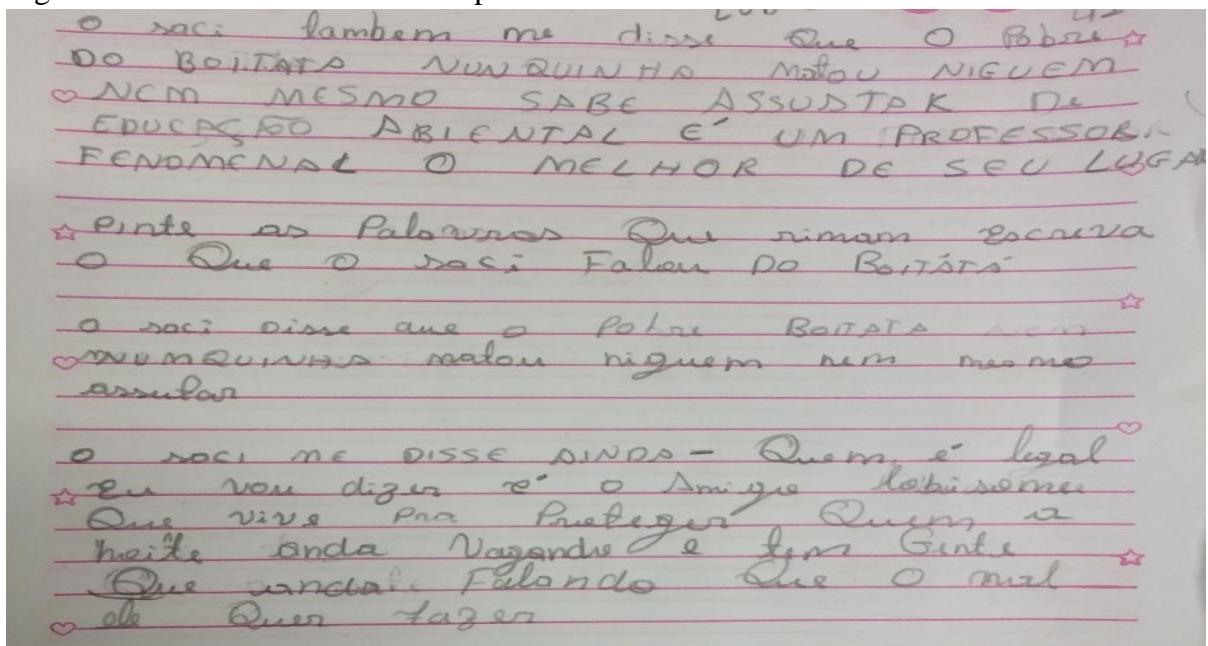 O saci tambem me disse Que O Pobre
DO BOITATA NUNQUINHA Matou NIGUEM
NEM MESMO SABE ASSUSTAR De
EDUCAÇÃO ABIENTAL É UM PROFESSOR
FENOMENAL O MELHOR DE SEU LUGAR
Pinte as Palavras Que rimam escreva
O Que O saci Falou DO BOITÁTÁ
O saci Disse que o Pobre BOITATA nem
NUMQUINHA matou niguem nem mesmo
assutar
O SACI ME DISSE AINDA - Quem é legal
Eu vou dizer é o Amigo lobisome
Que vive Pra Proteger Quem a
noite anda Vagando e tem Gente
Que anda Falando Que O mal
ele Quer fazer